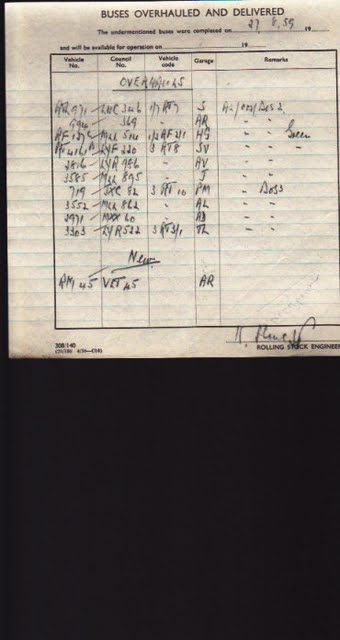 BUSES OVERHAULED AND DELIVERED
The undermentioned buses were completed on 27.8.59 19
and will be available for operation on 19
Vehicle No. Council No. Vehicle code Garage Remarks
OVERHAULS
971 346 1/7 RT7 S
369 AR
514 HG Green
LYF 220 3 RT8 SV " "
2816 LYR 956 AV " "
3585 MLL 895 J " "
719 JXC 82 3 RT 10 PM " Doss
3552 MLL 862 AL " "
2971 60 AB " "
3303 LYR 522 3 RT3/1 TL " "
New
RM 45 VLT 45 AR
308/140
ROLLING STOCK ENGINEER